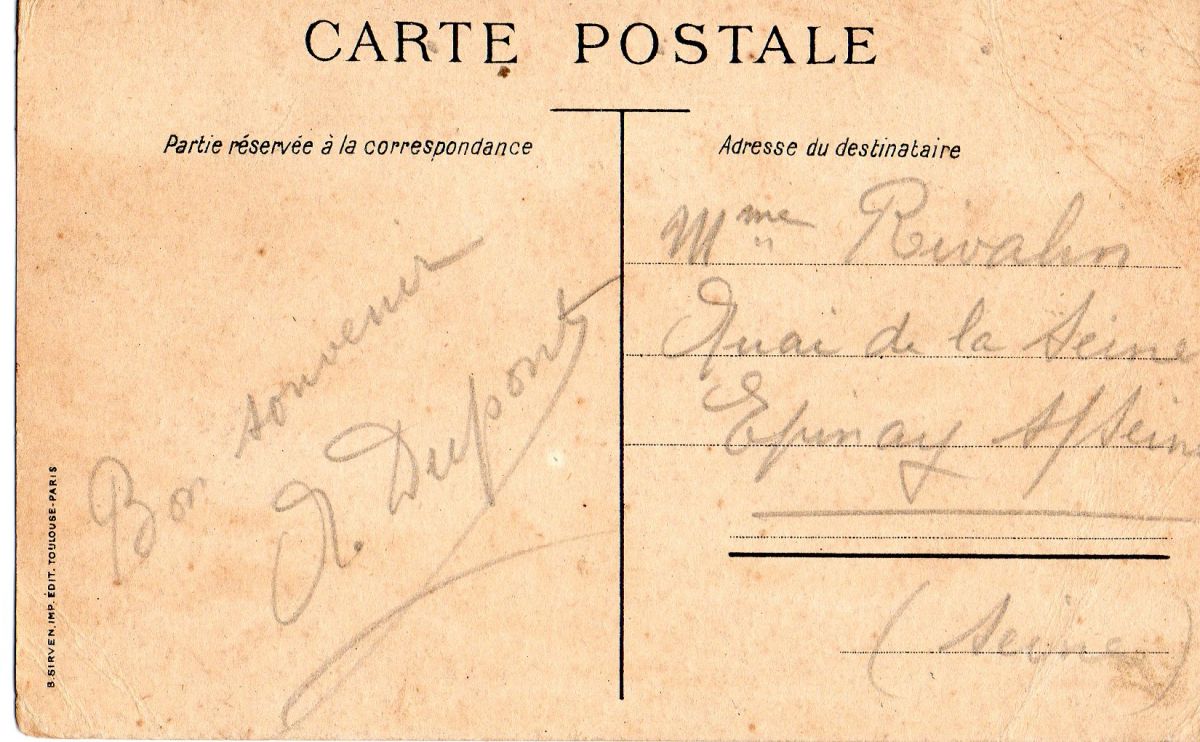 CARTE POSTALE
Partie réservée à la correspondance
Bon souvenir
Dupont
B. SIRVEN, IMP. EDIT. TOULOUSE-PARIS
Adresse du destinataire
Mme Rivalin
Quai de la Seine
Epinay s/Seine
(Seine)